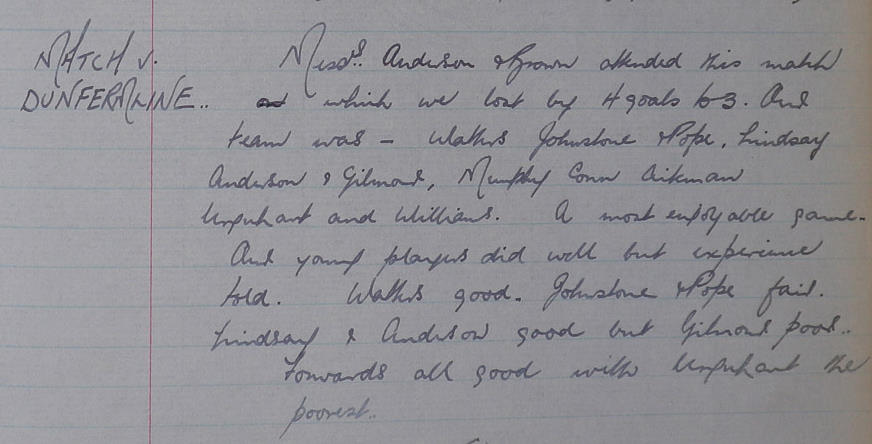 MATCH v. Messrs. Anderson & Brown attended this match
DUNFERMLINE.. at which we lost by 4 goals to 3. Our
team was – Watters Johnstone & Pope, Lindsay
Anderson & Gilmour, Murphy Conn Aikman
Urquhart and Williams. A most enjoyable game.
Our young players did well but experience
told. Watters good. Johnstone & Pope fair.
Lindsay & Anderson good but Gilmour poor..
Forwards all good with Urquhart the
poorest..